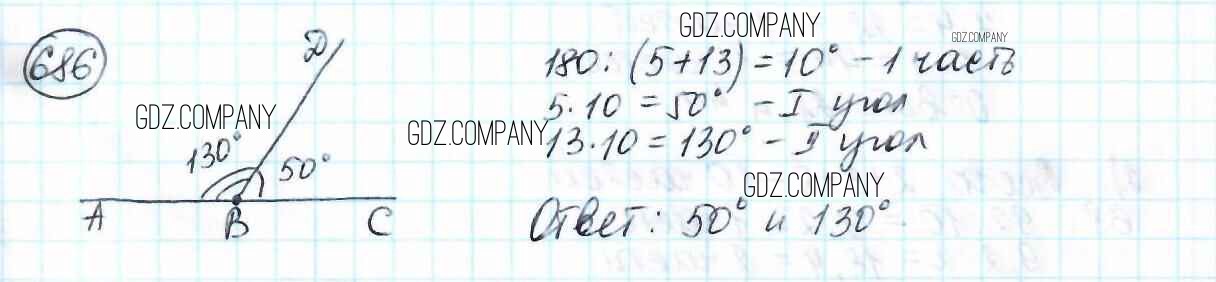 GDZ.COMPANY
GDZ.COMPANY
686
D
180 : (5+13) = 10° – 1 часть
GDZ.COMPANY
GDZ.COMPANY
5·10 = 50° – I угол
130° 50°
13·10 = 130° – II угол
GDZ.COMPANY
A B C
Ответ: 50° и 130°.